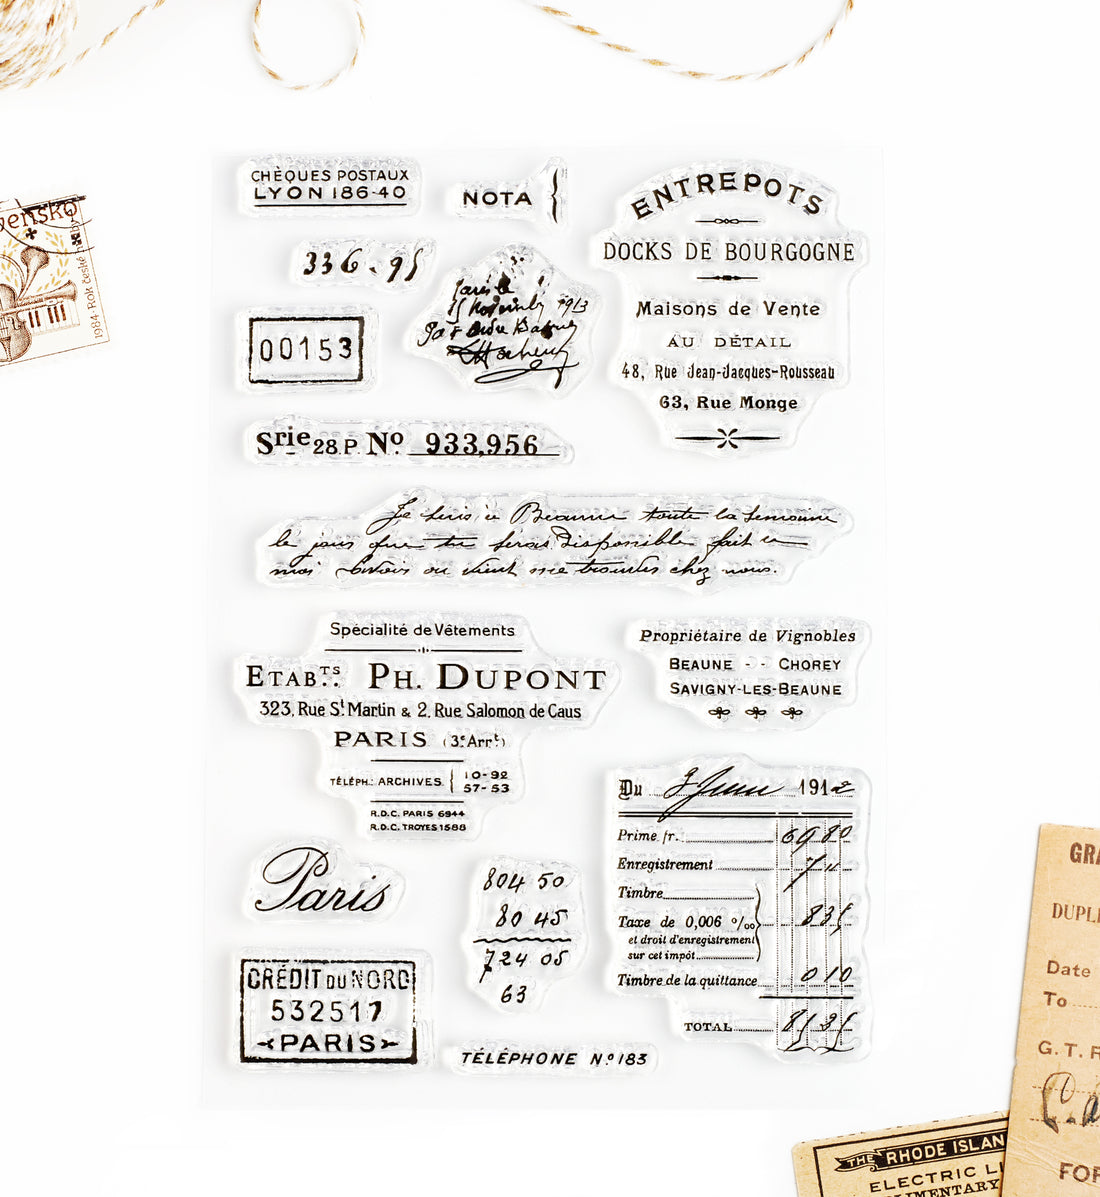 CHÈQUES POSTAUX
LYON 186-40
NOTA
ENTREPOTS
DOCKS DE BOURGOGNE
Maisons de Vente
AU DÉTAIL
48, Rue Jean-Jacques-Rousseau
63, Rue Monge
336.95
1913
00153
Srie 28.P. Nº 933,956
Je suis à Beaune toute la semaine
le jour que tu seras disponible fait le
moi savoir ou vient me trouver chez nous.
Spécialité de Vêtements
ETABTS. PH. DUPONT
323, Rue St Martin & 2, Rue Salomon de Caus
PARIS (3e Arrt)
TÉLÉPH.: ARCHIVES { 10-92
57-53
R.D.C. PARIS 6944
R.D.C. TROYES 1588
Propriétaire de Vignobles
BEAUNE - - CHOREY
SAVIGNY-LES-BEAUNE
Du 3 Juin 1912
Prime fr.: 69 80
Enregistrement
Timbre
Taxe de 0,006 º/oo 835
et droit d'enregistrement
sur cet impôt
Timbre de la quittance 0 10
TOTAL
Paris
804 50
80 45
724 05
63
CRÉDIT DU NORD
532517
PARIS
TÉLÉPHONE Nº 183
1984 Rok české
GRA
DUPL
Date
To
G. T. R
FOR
THE RHODE ISLAN
ELECTRIC LI